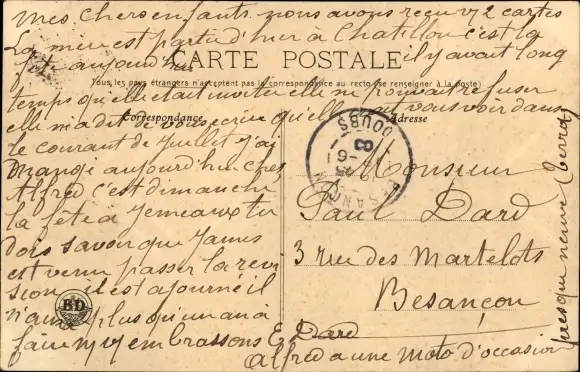 mes chers enfants nous avons reçu vos 2 cartes
La mère est partie d'hier a Chatillon c'est la
fête aujourd'hui il y avait long
CARTE POSTALE
Tous les pays étrangers n'acceptent pas la correspondance au recto (se renseigner à la poste)
temps qu'elle etait invitée elle ne pouvait refuser
Correspondance
Adresse
elle m'a dit de vous ecrire qu'elle irait vous voir dans
le courant de Juillet j'ai
mangé aujourd'hui chez
Alfred c'est dimanche
la fête a Jemeaux tu
dois savoir que James
est venu passer la revi
sion il est ajourné il
n'aura plus qu'un an à
faire embrassons E Dard
Alfred a une moto d'occasion
presque neuve Terrot
BESANCON
DOUBS
Monsieur
Paul Dard
3 rue des Martelots
Besançon
BD